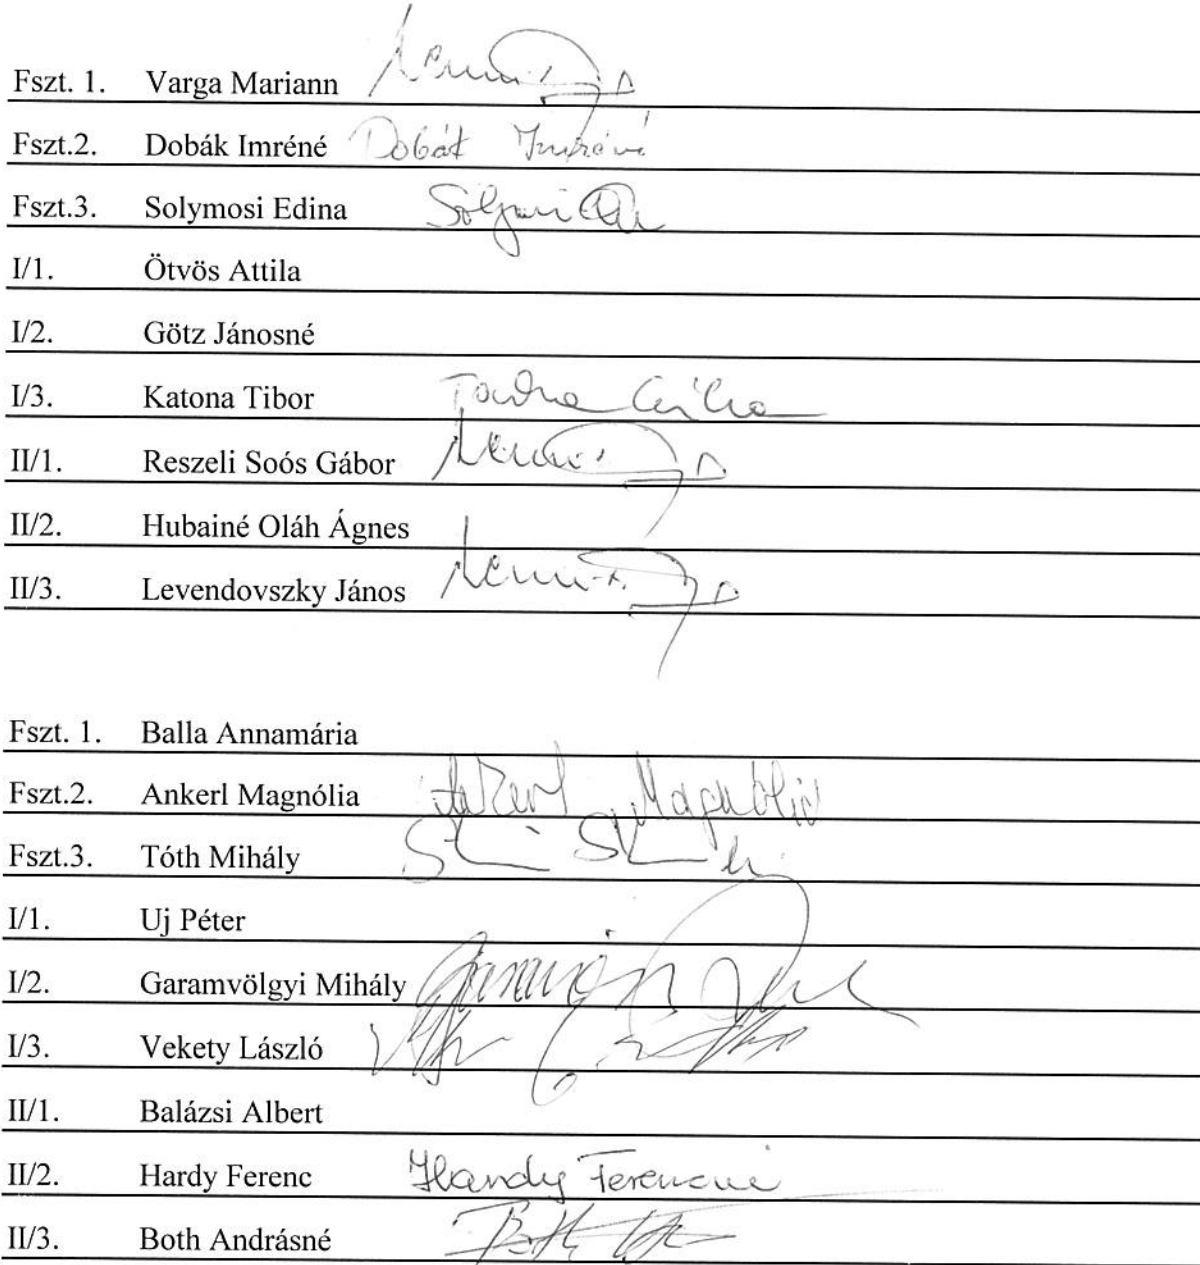 Fszt. 1. Varga Mariann
Fszt.2. Dobák Imréné Dobák Imréné
Fszt.3. Solymosi Edina
I/1. Ötvös Attila
I/2. Götz Jánosné
I/3. Katona Tibor
II/1. Reszeli Soós Gábor
II/2. Hubainé Oláh Ágnes
II/3. Levendovszky János
Fszt. 1. Balla Annamária
Fszt.2. Ankerl Magnólia Ankerl Magnólia
Fszt.3. Tóth Mihály
I/1. Uj Péter
I/2. Garamvölgyi Mihály
I/3. Vekety László
II/1. Balázsi Albert
II/2. Hardy Ferenc Hardy Ferencné
II/3. Both Andrásné Both